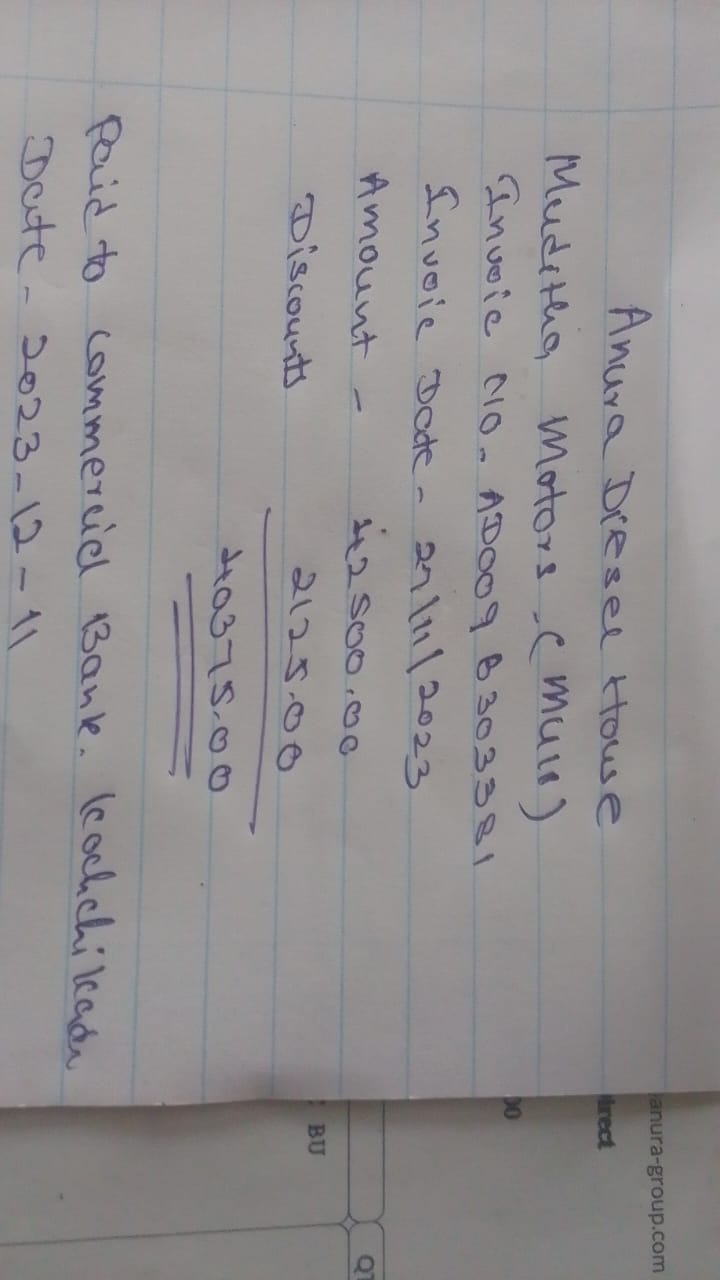 Anura Diesel House
Muditha Motors (Mull)
Invoic No. AD009 B303381
Invoic Date - 27/11/2023
Amount - 42500.00
Discounts 2125.00
40375.00
Paid to Commercial Bank. Kochchikade
Date - 2023-12-11
anura-group.com
direct
00
: BU
QT